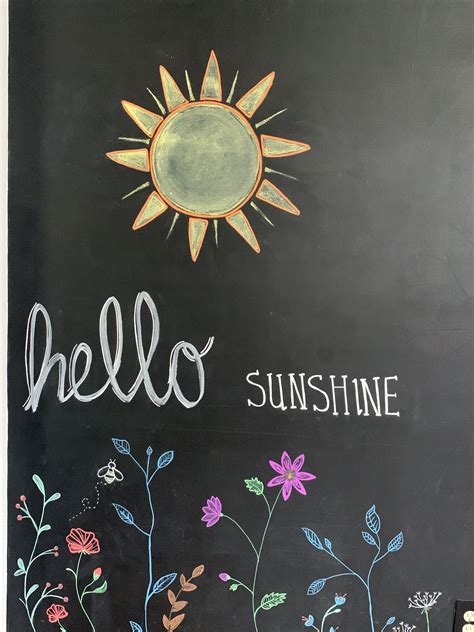 hello SUNSHINE